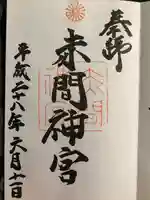 奉拝
赤間神宮
平成二十八年六月十一日